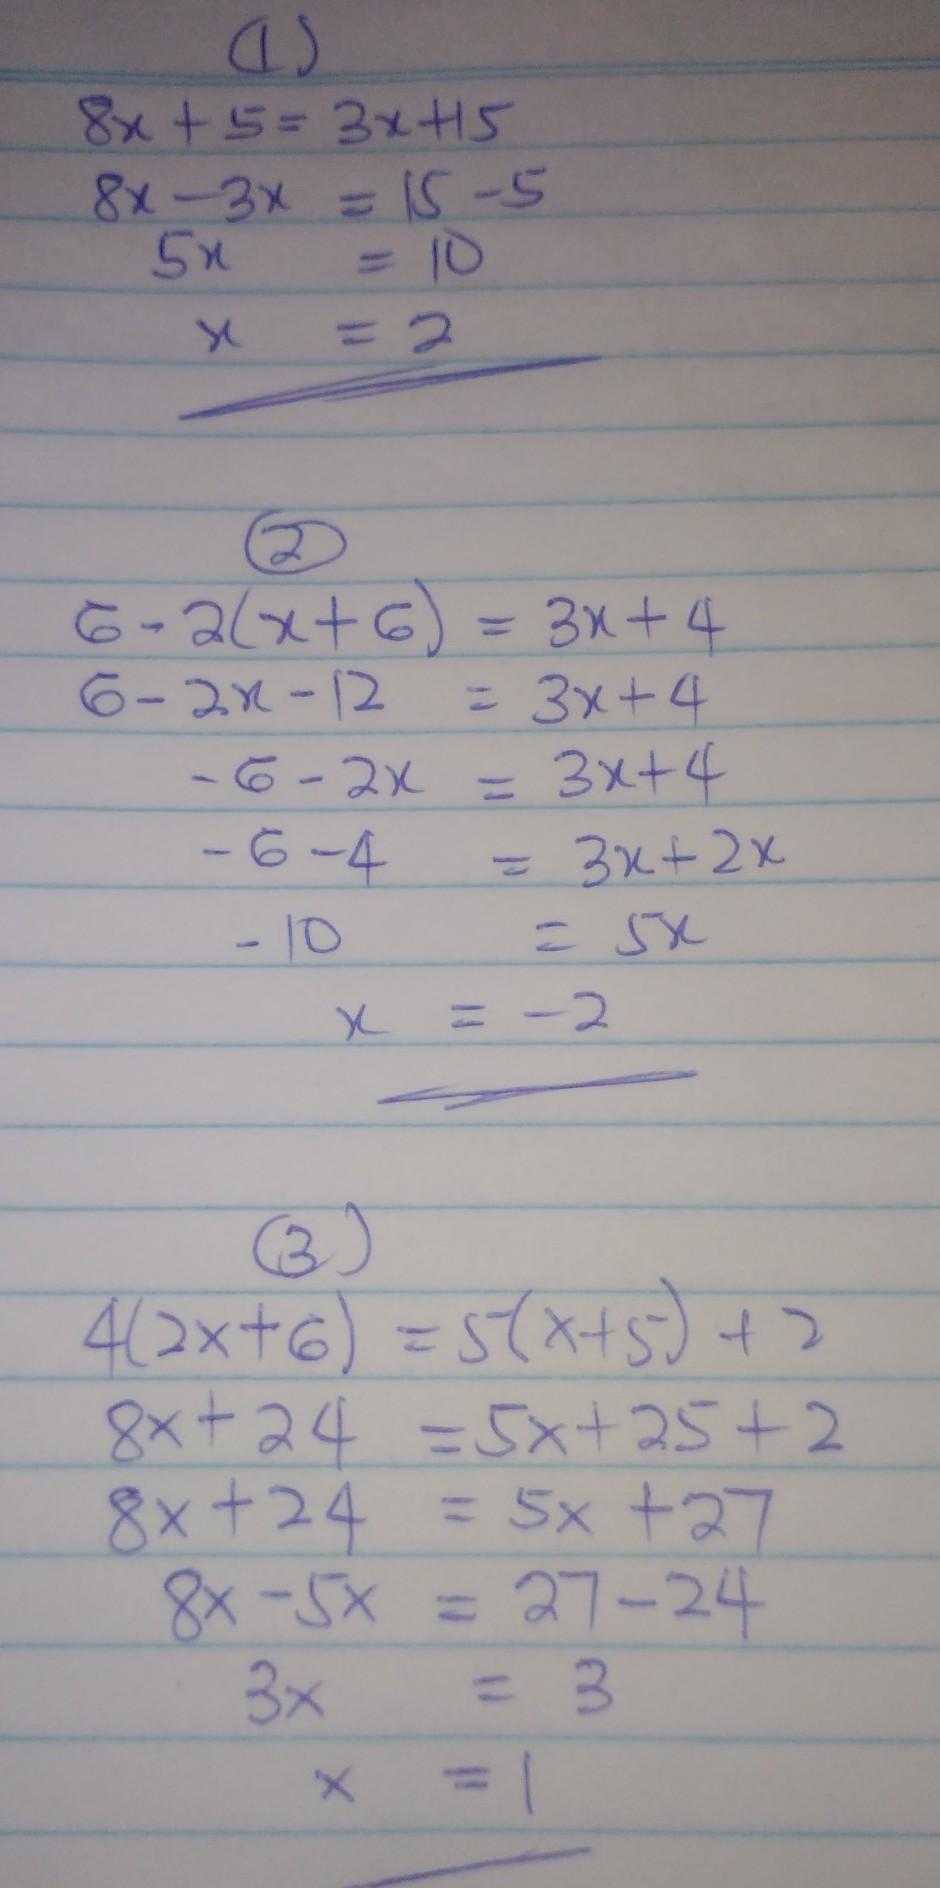 (1)
8x + 5 = 3x+15
8x - 3x = 15 - 5
5x = 10
x = 2
2
6 - 2(x+6) = 3x + 4
6 - 2x - 12 = 3x + 4
-6 - 2x = 3x+4
-6 - 4 = 3x + 2x
-10 = 5x
x = -2
(3)
4(2x+6) = 5(x+5) + 2
8x + 24 = 5x + 25 + 2
8x + 24 = 5x + 27
8x - 5x = 27 - 24
3x = 3
x = 1